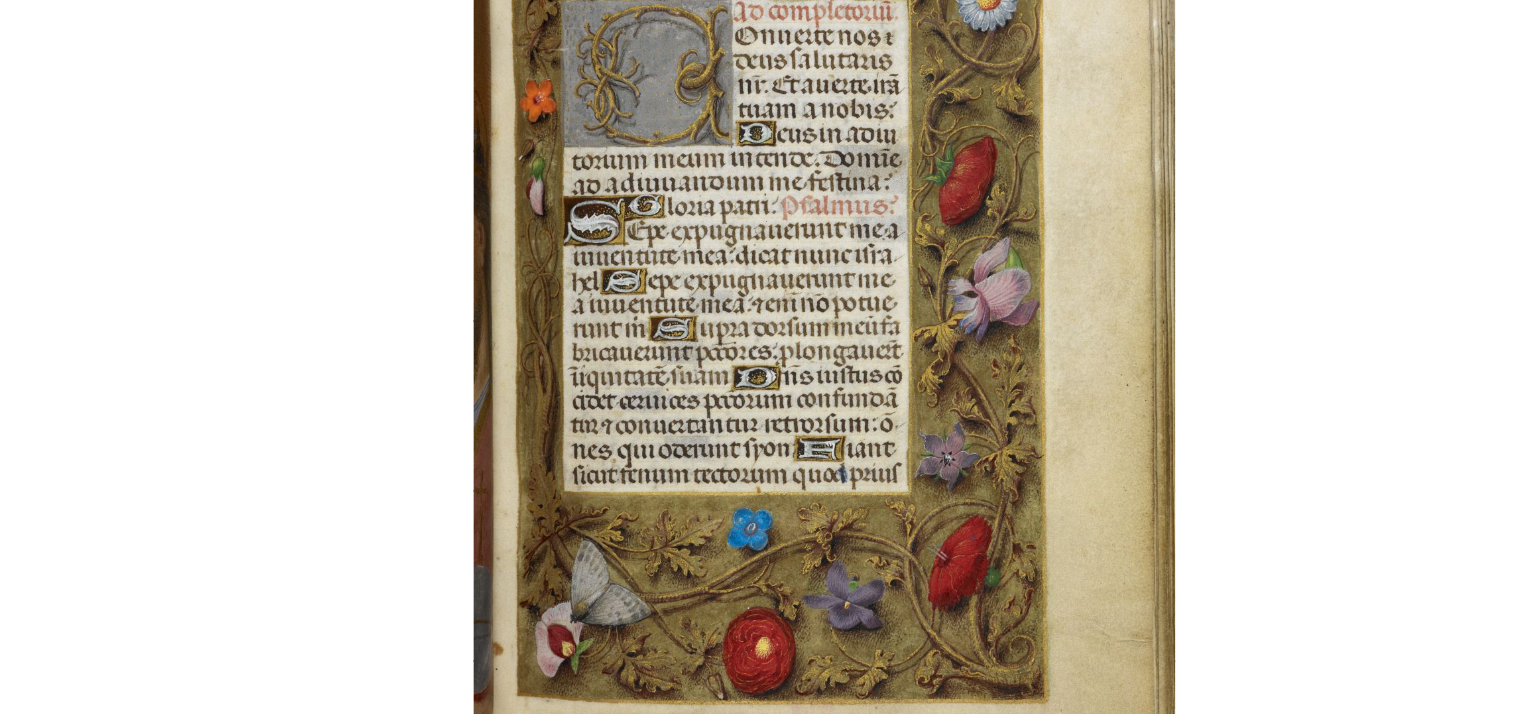 Ad completoriū.
Onuerte nos
deus salutaris
nr̄. Et auerte irā
tuam a nobis:
Deus in adiu
torium meum intende. Domīe
ad adiuuandum me festina:
Gloria patri. Psalmus:
Sepe expugnauerunt me a
iuuentute mea: dicat nunc isra
hel Sepe expugnauerunt me
a iuuentute mea: etenī nō potue
runt m̄ Supra dorsum meū fa
bricauerunt pctōres: plongauert̄
iiquitatē suam Dn̄s iustus cō
cidet ceruices pctorum confundā
tur ⁊ conuertantur retrorsum: ō
nes qui oderunt syon Fiant
sicut fenum tectorum quod prius